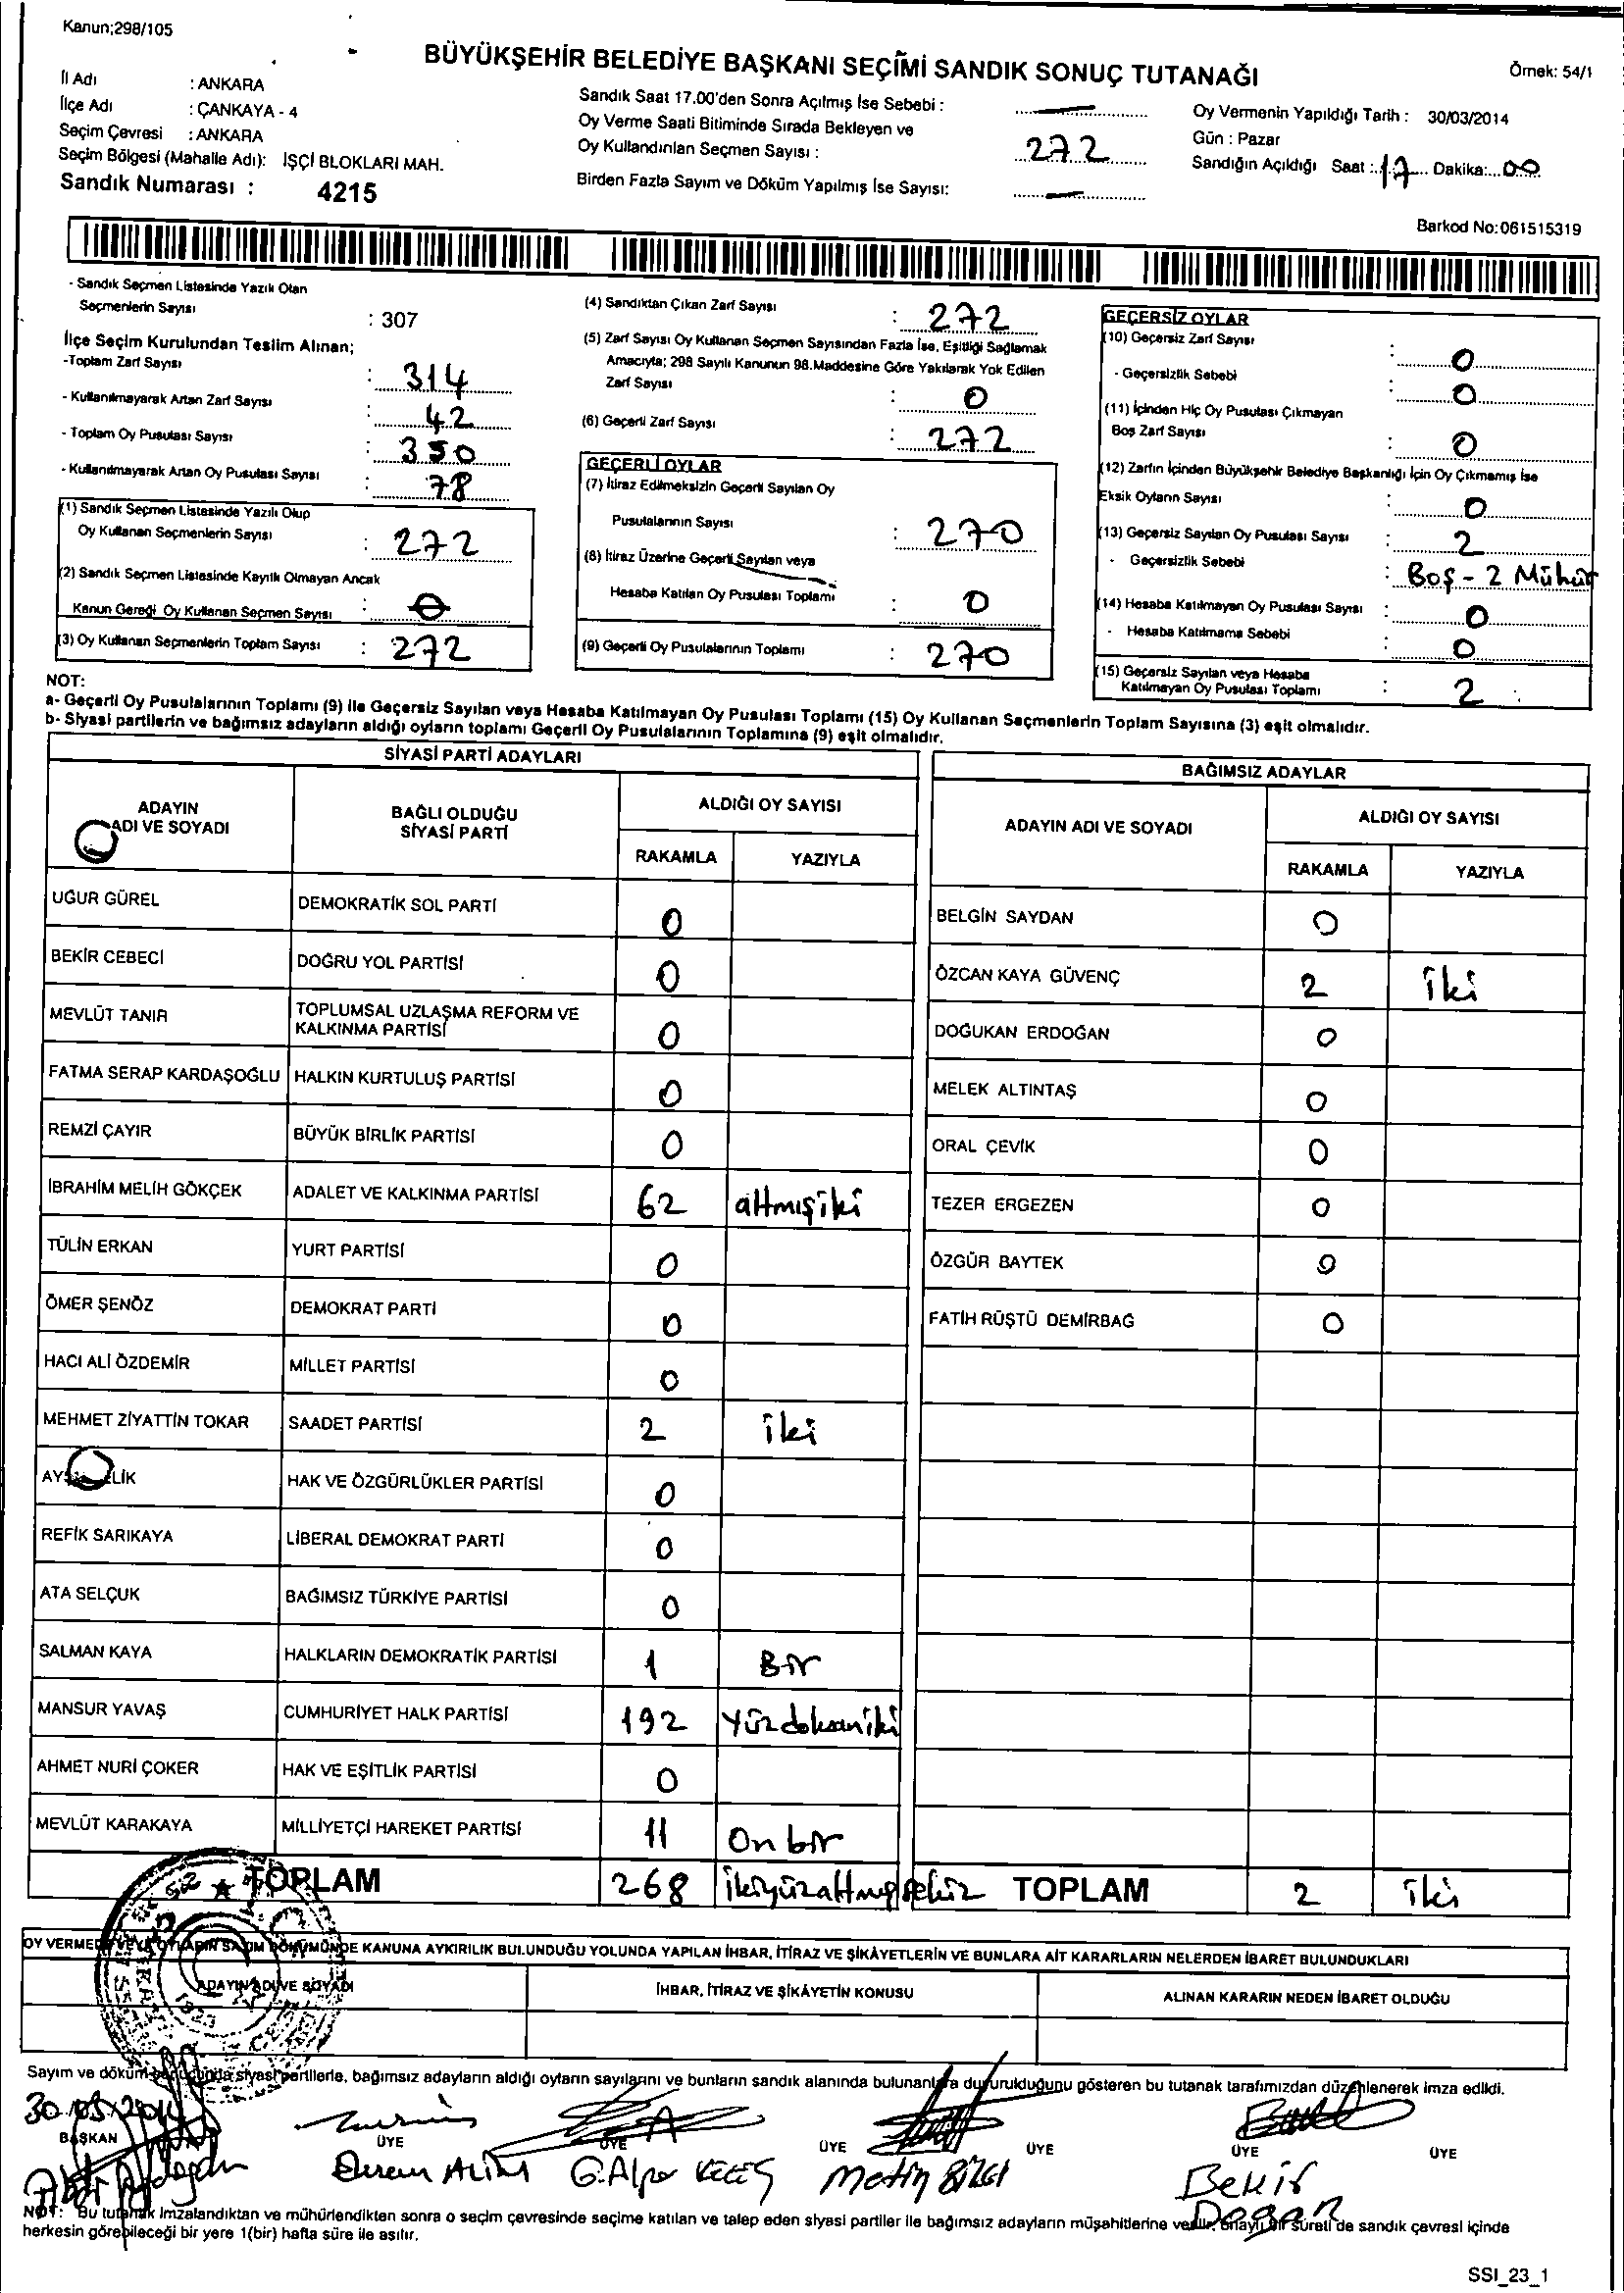 Kanun;298/105
BÜYÜKŞEHİR BELEDİYE BAŞKANI SEÇİMİ SANDIK SONUÇ TUTANAĞI
Örnek: 54/1
İl Adı : ANKARA
İlçe Adı : ÇANKAYA - 4
Seçim Çevresi : ANKARA
Seçim Bölgesi (Mahalle Adı): İŞÇİ BLOKLARI MAH.
Sandık Numarası : 4215
Sandık Saat 17.00'den Sonra Açılmış İse Sebebi : —
Oy Verme Saati Bitiminde Sırada Bekleyen ve
Oy Kullandırılan Seçmen Sayısı : 272
Birden Fazla Sayım ve Döküm Yapılmış İse Sayısı: —
Oy Vermenin Yapıldığı Tarih : 30/03/2014
Gün : Pazar
Sandığın Açıldığı Saat : 17 Dakika: 00
Barkod No:061515319
- Sandık Seçmen Listesinde Yazılı Olan
Seçmenlerin Sayısı : 307
İlçe Seçim Kurulundan Teslim Alınan;
-Toplam Zarf Sayısı : 314
- Kullanılmayarak Artan Zarf Sayısı : 42
- Toplam Oy Pusulası Sayısı : 350
- Kullanılmayarak Artan Oy Pusulası Sayısı : 78
(1) Sandık Seçmen Listesinde Yazılı Olup
Oy Kullanan Seçmenlerin Sayısı : 272
(2) Sandık Seçmen Listesinde Kayıtlı Olmayan Ancak
Kanun Gereği Oy Kullanan Seçmen Sayısı : 0
(3) Oy Kullanan Seçmenlerin Toplam Sayısı : 272
(4) Sandıktan Çıkan Zarf Sayısı : 272
(5) Zarf Sayısı Oy Kullanan Seçmen Sayısından Fazla İse, Eşitliği Sağlamak
Amacıyla; 298 Sayılı Kanunun 98.Maddesine Göre Yakılarak Yok Edilen
Zarf Sayısı : 0
(6) Geçerli Zarf Sayısı : 272
GEÇERLİ OYLAR
(7) İtiraz Edilmeksizin Geçerli Sayılan Oy
Pusulalarının Sayısı : 270
(8) İtiraz Üzerine Geçerli Sayılan veya
Hesaba Katılan Oy Pusulası Toplamı : 0
(9) Geçerli Oy Pusulalarının Toplamı : 270
GEÇERSİZ OYLAR
(10) Geçersiz Zarf Sayısı : 0
- Geçersizlik Sebebi : 0
(11) İçinden Hiç Oy Pusulası Çıkmayan
Boş Zarf Sayısı : 0
(12) Zarfın İçinden Büyükşehir Belediye Başkanlığı İçin Oy Çıkmamış İse
Eksik Oyların Sayısı : 0
(13) Geçersiz Sayılan Oy Pusulası Sayısı : 2
- Geçersizlik Sebebi : Boş - 2 Mühür
(14) Hesaba Katılmayan Oy Pusulası Sayısı : 0
- Hesaba Katılmama Sebebi : 0
(15) Geçersiz Sayılan veya Hesaba
Katılmayan Oy Pusulası Toplamı : 2
NOT:
a- Geçerli Oy Pusulalarının Toplamı (9) ile Geçersiz Sayılan veya Hesaba Katılmayan Oy Pusulası Toplamı (15) Oy Kullanan Seçmenlerin Toplam Sayısına (3) eşit olmalıdır.
b- Siyasi partilerin ve bağımsız adayların aldığı oyların toplamı Geçerli Oy Pusulalarının Toplamına (9) eşit olmalıdır.
SİYASİ PARTİ ADAYLARI
ADAYIN ADI VE SOYADI BAĞLI OLDUĞU SİYASİ PARTİ ALDIĞI OY SAYISI
RAKAMLA YAZIYLA
UĞUR GÜREL DEMOKRATİK SOL PARTİ 0
BEKİR CEBECİ DOĞRU YOL PARTİSİ 0
MEVLÜT TANIR TOPLUMSAL UZLAŞMA REFORM VE KALKINMA PARTİSİ 0
FATMA SERAP KARDAŞOĞLU HALKIN KURTULUŞ PARTİSİ 0
REMZİ ÇAYIR BÜYÜK BİRLİK PARTİSİ 0
İBRAHİM MELİH GÖKÇEK ADALET VE KALKINMA PARTİSİ 62 altmışiki
TÜLİN ERKAN YURT PARTİSİ 0
ÖMER ŞENÖZ DEMOKRAT PARTİ 0
HACI ALİ ÖZDEMİR MİLLET PARTİSİ 0
MEHMET ZİYATTİN TOKAR SAADET PARTİSİ 2 iki
HAK VE ÖZGÜRLÜKLER PARTİSİ 0
REFİK SARIKAYA LİBERAL DEMOKRAT PARTİ 0
ATA SELÇUK BAĞIMSIZ TÜRKİYE PARTİSİ 0
SALMAN KAYA HALKLARIN DEMOKRATİK PARTİSİ 1 Bir
MANSUR YAVAŞ CUMHURİYET HALK PARTİSİ 192 yüzdoksaniki
AHMET NURİ ÇOKER HAK VE EŞİTLİK PARTİSİ 0
MEVLÜT KARAKAYA MİLLİYETÇİ HAREKET PARTİSİ 11 Onbir
TOPLAM 268 ikiyüzaltmışsekiz
BAĞIMSIZ ADAYLAR
ADAYIN ADI VE SOYADI ALDIĞI OY SAYISI
RAKAMLA YAZIYLA
BELGİN SAYDAN 0
ÖZCAN KAYA GÜVENÇ 2 iki
DOĞUKAN ERDOĞAN 0
MELEK ALTINTAŞ 0
ORAL ÇEVİK 0
TEZER ERGEZEN 0
ÖZGÜR BAYTEK 0
FATİH RÜŞTÜ DEMİRBAĞ 0
TOPLAM 2 iki
OY VERMEDE VEYA OYLARIN SAYIM DÖKÜMÜNDE KANUNA AYKIRILIK BULUNDUĞU YOLUNDA YAPILAN İHBAR, İTİRAZ VE ŞİKÂYETLERİN VE BUNLARA AİT KARARLARIN NELERDEN İBARET BULUNDUKLARI
ADAYIN ADI VE SOYADI İHBAR, İTİRAZ VE ŞİKÂYETİN KONUSU ALINAN KARARIN NEDEN İBARET OLDUĞU
Sayım ve döküm sonucunda siyasi partilerle, bağımsız adayların aldığı oyların sayılarını ve bunların sandık alanında bulunanlara duyurulduğunu gösteren bu tutanak tarafımızdan düzenlenerek imza edildi.
30.03.2014
BAŞKAN ÜYE ÜYE ÜYE ÜYE ÜYE ÜYE
G.Alper KELEŞ Metin BİLGİ Bekir
Doğan
NOT: Bu tutanak imzalandıktan ve mühürlendikten sonra o seçim çevresinde seçime katılan ve talep eden siyasi partiler ile bağımsız adayların müşahitlerine verilir. Onaylı bir sureti de sandık çevresi içinde
herkesin görebileceği bir yere 1(bir) hafta süre ile asılır.
SSI_23_1